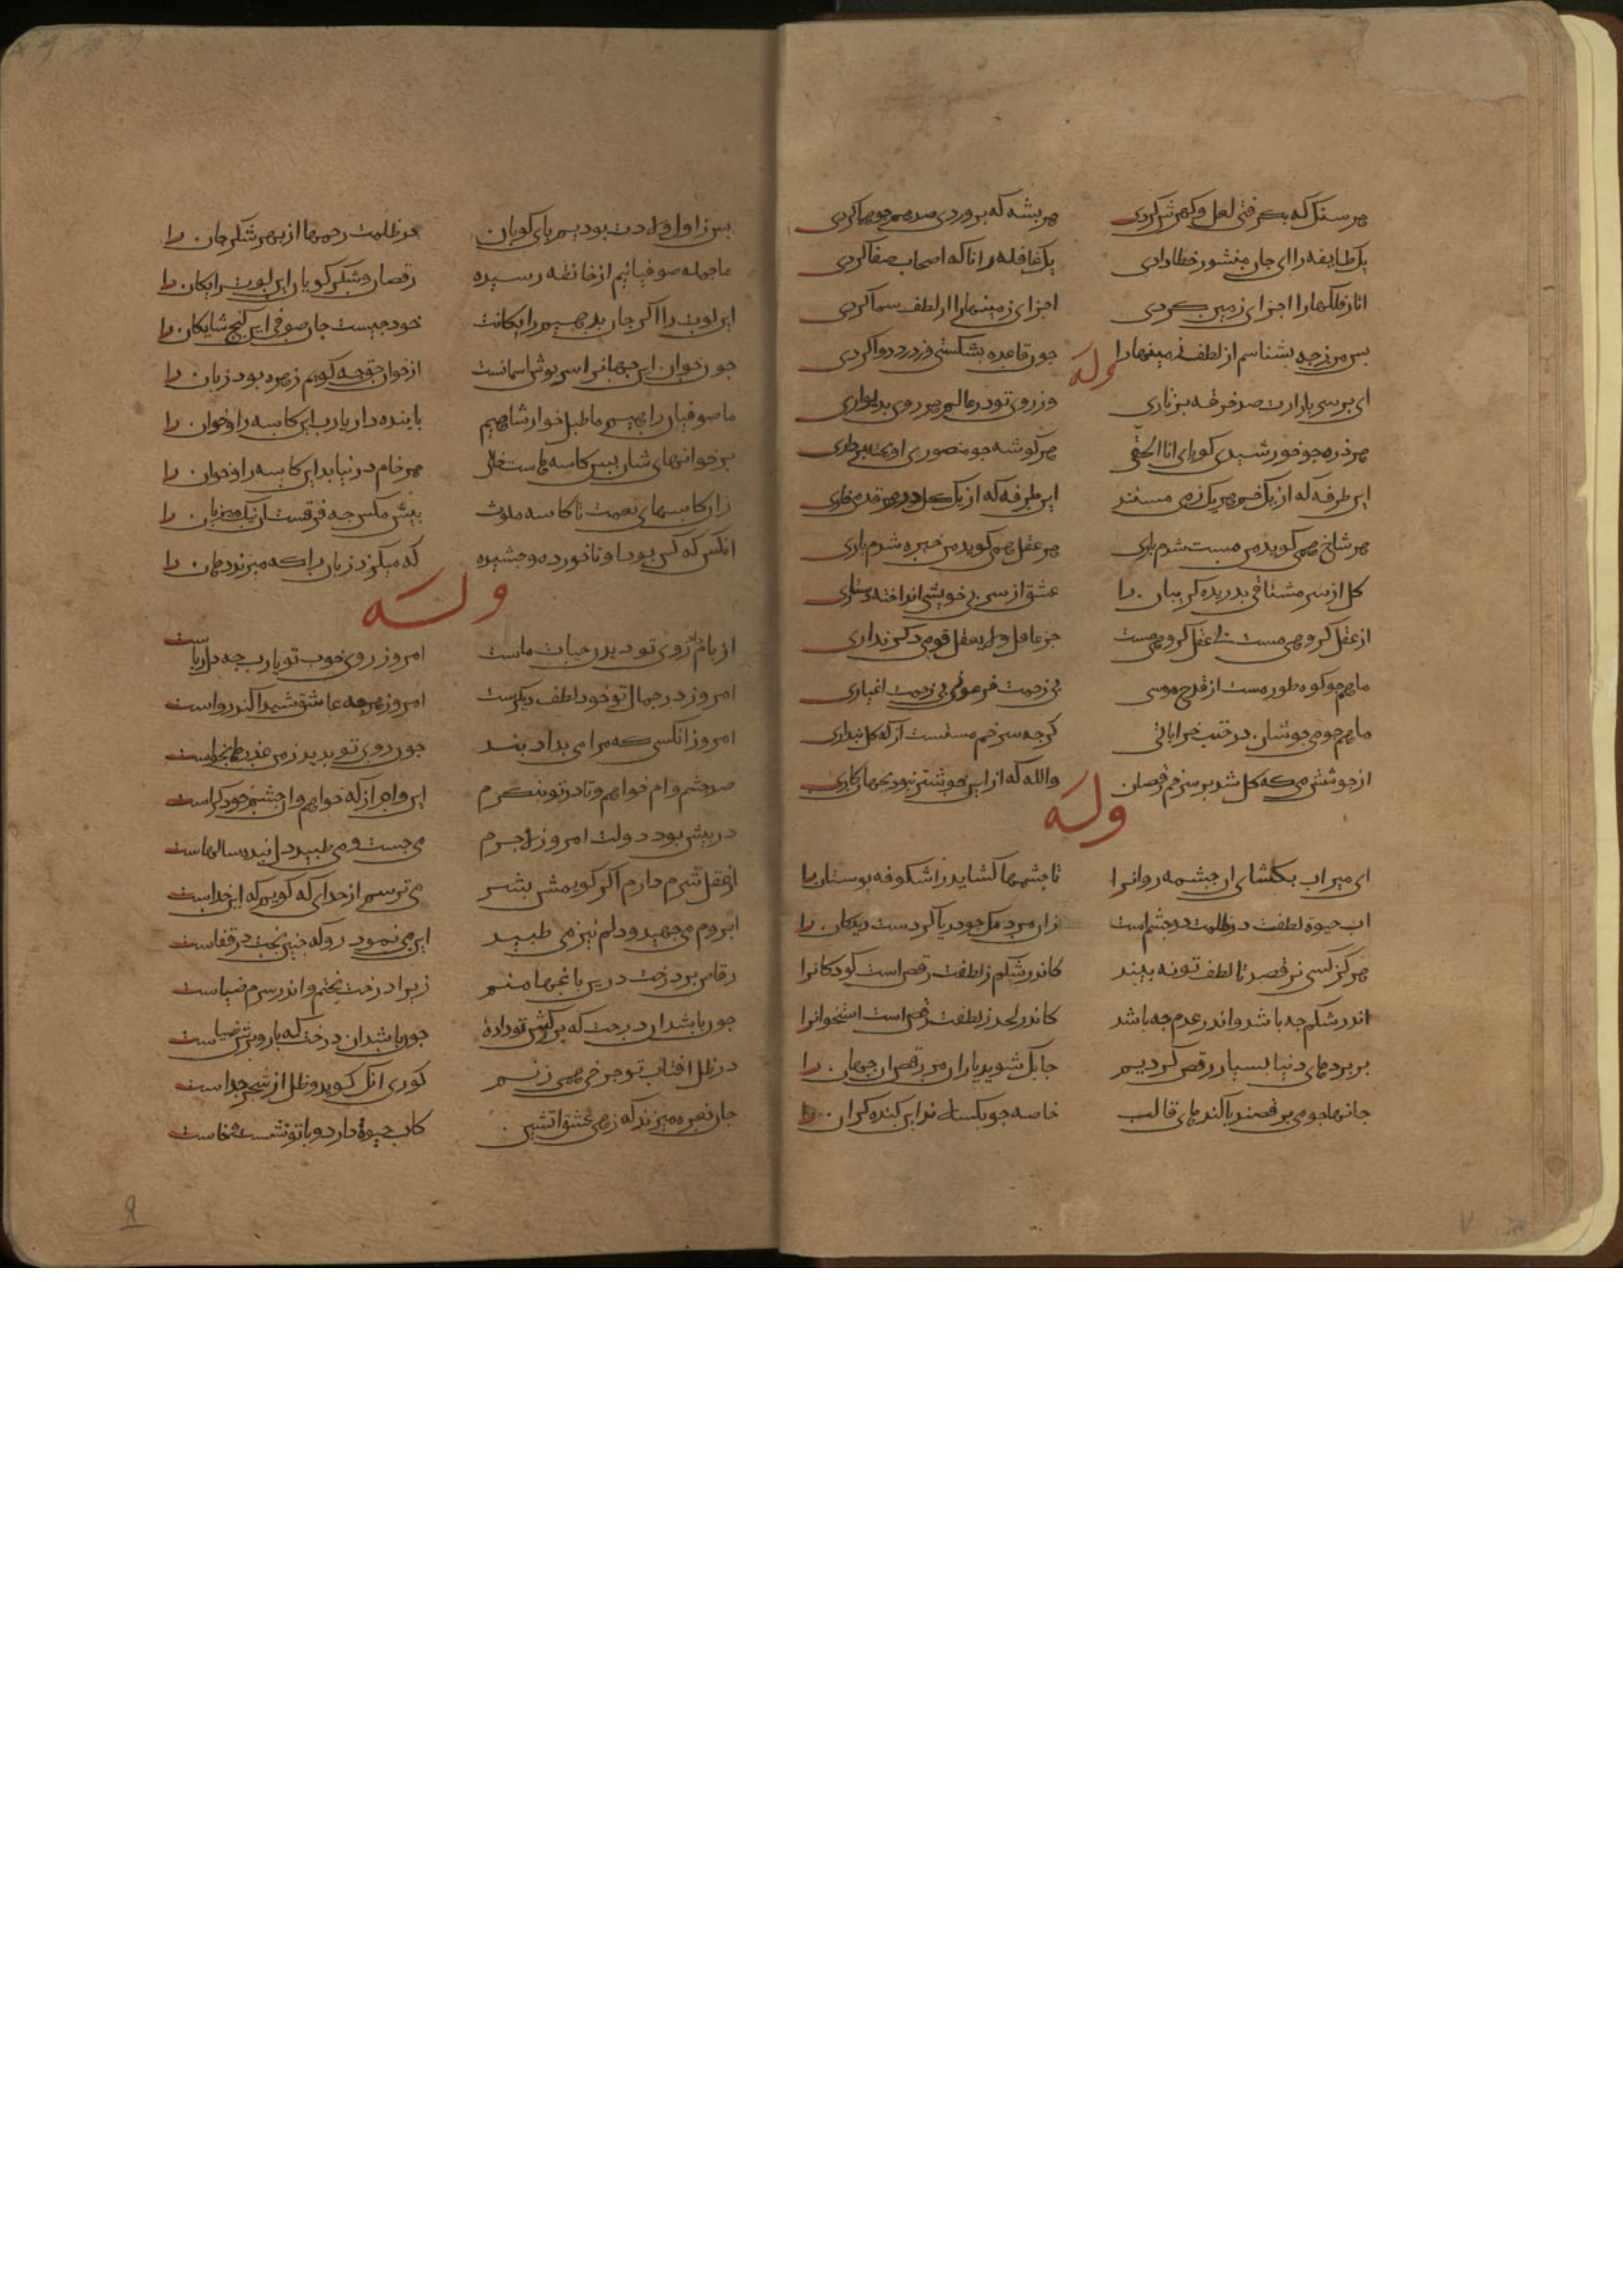 هر سنک که بکرفتی لعل و کهرش کردی هر بشه که بروردی صد همجو هما کردی
یک طایفه را ای جان منشور خطا دادی یک قافله را تا که اصحاب صفا کردی
اثار فلکها را اجزای زمین کردی اجزای زمینها را از لطف سما کردی
بس من زجه بشناسم از لطف زمینها را جون قاعده بشکستی وز درد دوا کردی
وله
ای بر سر بازارت صد خرقه بزناری وز روی تو در عالم هر روی بدیواری
هر ذره جو خورشیدی کویای انا الحقی هر کوشه جو منصوری اویخته بر داری
این طرفه که از یک خم هر یک ز می مستند این طرفه که از یک کل در هر قدمی خاری
هر شاخ همی کوید من مست شدم باری هر عقل همی کوید من خیره شدم باری
کل از سر مشتاقی بدریده کریبان را عشق از سر بی خویشی انداخته دستاری
از عقل کروهی مست بی عقل کروهی مست جز عاقل و لایعقل قومی دکرند اری
ماهم جو کوه طور مست از قدح موسی بی زحمت فرعونی بی زحمت اغیاری
ماهم جو می جوشان در خنب خراباتی کرجه سر خم بستست از که کل بنداری
از جوشش می که کل شد بر سر خم رقصان والله که از این خوشتر نبود بجهان کاری
وله
ای میر اب بکشای ان جشمه روانرا تا جشمها کشاید ز اشکوفه بوستان را
اب حیوة لطفت در ظلمت دو جشم است زان مردمک جو دریا کردست دیدکان را
هرکز کسی نرقصد تا لطف تو نه بیند کاندر شکم ز لطفت رقص است کودکانرا
اندر شکم جه باشد و اندر عدم جه باشد کاندر لحد ز لطفت رقص است استخوانرا
بر بردهای دنیا بسیار رقص کردیم جابک شوید یاران مر رقص ان جهان را
جانها جو می برقصند با کندهای قالب خاصه جو بکسلند این کنده کران را
بس ز اول ولادت بودیم بای کوبان در ظلمت رحمها از بهر شکر جان را
ما جمله صوفیانیم از خانقه رسیده رقصان و شکر کویان این لوت رایکان را
این لوت را اکر جان بدهیم رایکانست خود جیست جان صوفی این کنج شایکان را
جون خوان این جهانرا سر بوش اسمانست از خوان حق جه کویم زهره بود زبان را
ما صوفیان راهیم ما طبل خوار شاهیم باینده دار یارب این کاسه را و خوان را
بر خوانهای شاهان بس کاسه هاست خالی هر خام در نیابد این کاسه را و خوان را
زان کاسهای نعمت تا کاسه ملوث بیش مکس جه فرقست ان نیک میزبان را
انکس که کس بود او ناخورده و جشیده که میکزد زبان را که میزند دهان را
وله
از بام روی تو دیدن حیات ماست امروز روی خوب تو یارب جه دلرباست
امروز در جمال تو خود لطف دیکرست امروز هرجه عاشق شیدا کند رواست
امروز انکسی که مرا می بداد بند جون روی تو بدید ز من عذرها بخواست
صد جشم وام خواهم و تا در تو بنکرم این وام از که خواهم و ان جشم خود کراست
در بیش بود دولت امروز لاجرم می جست و می طبید دل بنده سالهاست
از عقل شرم دارم اکر کویمش بشر می ترسم از خدای که کویم که این خداست
ابروم می جهید و دلم نیز می طبید این می نمود رو که جنین بخت در قفاست
رقاص بر درخت درین باغها منم زیرا درخت بختم و اندر سرم ضیاست
جون باشد ان درخت که برکش تو داده جون باشد ان درخت که بارویش ضیاست
در ظل افتاب تو جرخی همی زنیم کوری انک کوید و ظل از شجر جداست
جان نعره میزند که زهی عشق اتشین کاب حیوة دارد و با تو نشست خاست